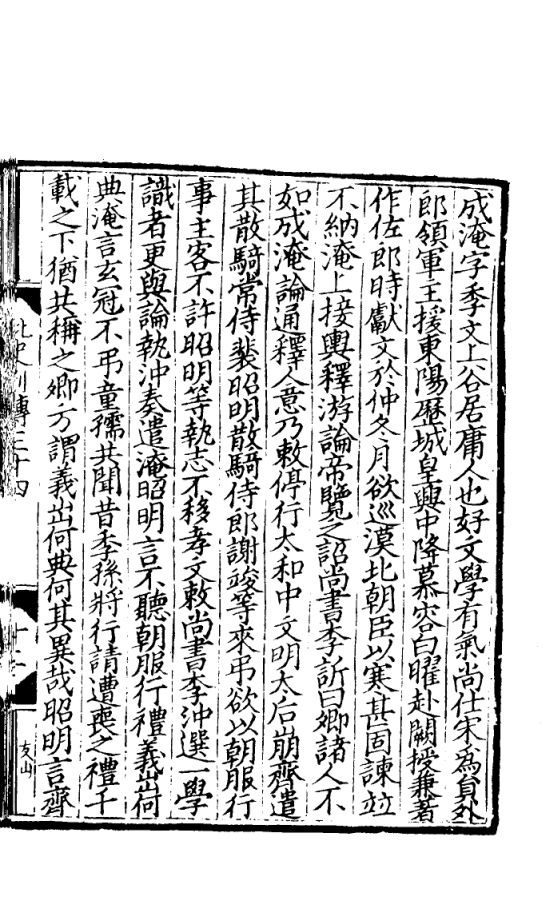 成淹字季文上谷居庸人也好文學有氣尚仕宋爲貟外
郎領軍主援東陽歷城皇興中降慕容白曜赴闕授兼著
作佐郎時獻文於仲冬月欲巡漠北朝臣以寒甚固諫並
不納淹上接輿釋游論帝覽之詔尚書李訢曰卿諸人不
如成淹論通釋人意乃敕停行太和中文明太后崩齊遣
其散騎常侍裴昭明散騎侍郎謝竣等來弔欲以朝服行
事主客不許昭明等執志不移孝文敕尚書李沖選一學
識者更與論執沖奏遣淹昭明言不聽朝服行禮義出何
典淹言玄冠不弔童孺共聞昔季孫將行請遭喪之禮千
載之下猶共稱之卿方謂義出何典何其異哉昭明言齊
北史列傳三十四
十二
友山